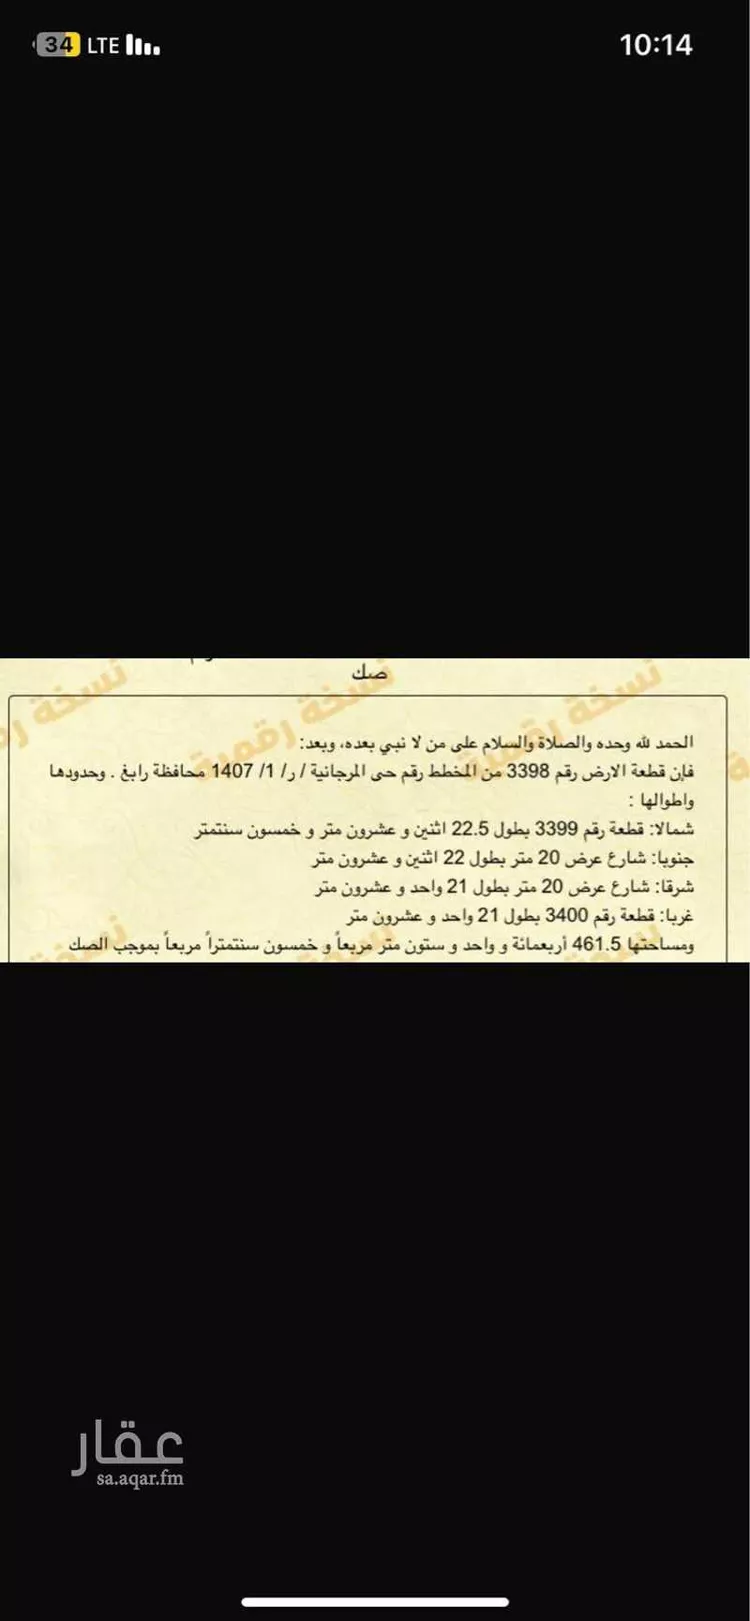 10:14
LTE 34
صك
الحمد لله وحده والصلاة والسلام على من لا نبي بعده، وبعد:
فإن قطعة الارض رقم 3398 من المخطط رقم حى المرجانية / ر/ 1/ 1407 محافظة رابغ . وحدودها
واطوالها :
شمالا: قطعة رقم 3399 بطول 22.5 اثنين و عشرون متر و خمسون سنتمتر
جنوبا: شارع عرض 20 متر بطول 22 اثنين و عشرون متر
شرقا: شارع عرض 20 متر بطول 21 واحد و عشرون متر
غربا: قطعة رقم 3400 بطول 21 واحد و عشرون متر
ومساحتها 461.5 أربعمائة و واحد و ستون متر مربعاً و خمسون سنتمتراً مربعاً بموجب الصك
نسخة رقمية
نسخة رقمية
نسخة رقمية
عقار
sa.aqar.fm